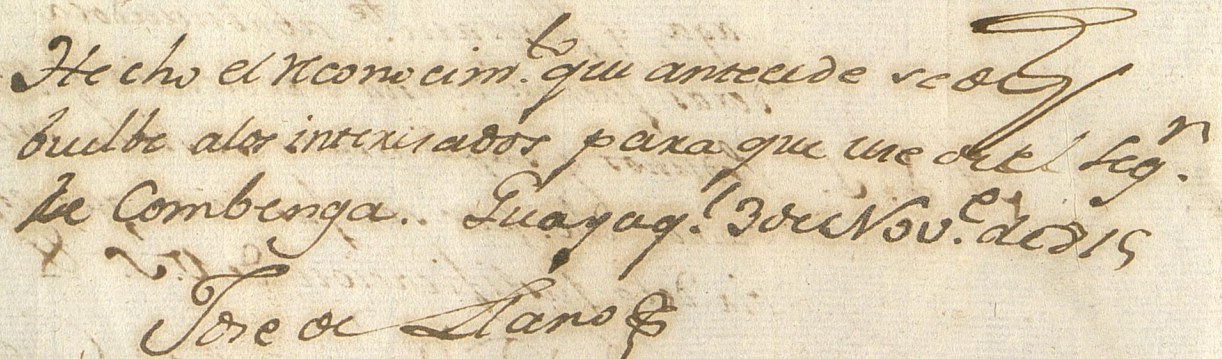 Hecho el reconocim.to que antecede se de
buelbe a los interesados para que use de el seg.n
le Combenga. Guayaq.l 3 de Nov.e de 815
Jose de Llano